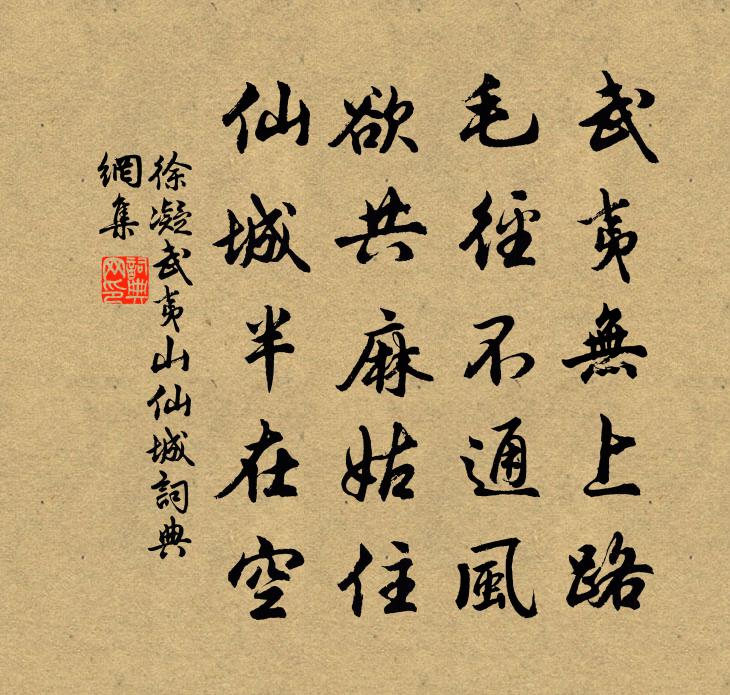 武夷無上路
毛徑不通風
欲共麻姑住
仙城半在空
徐凝武夷山仙城詞典
網集
詞典
网印